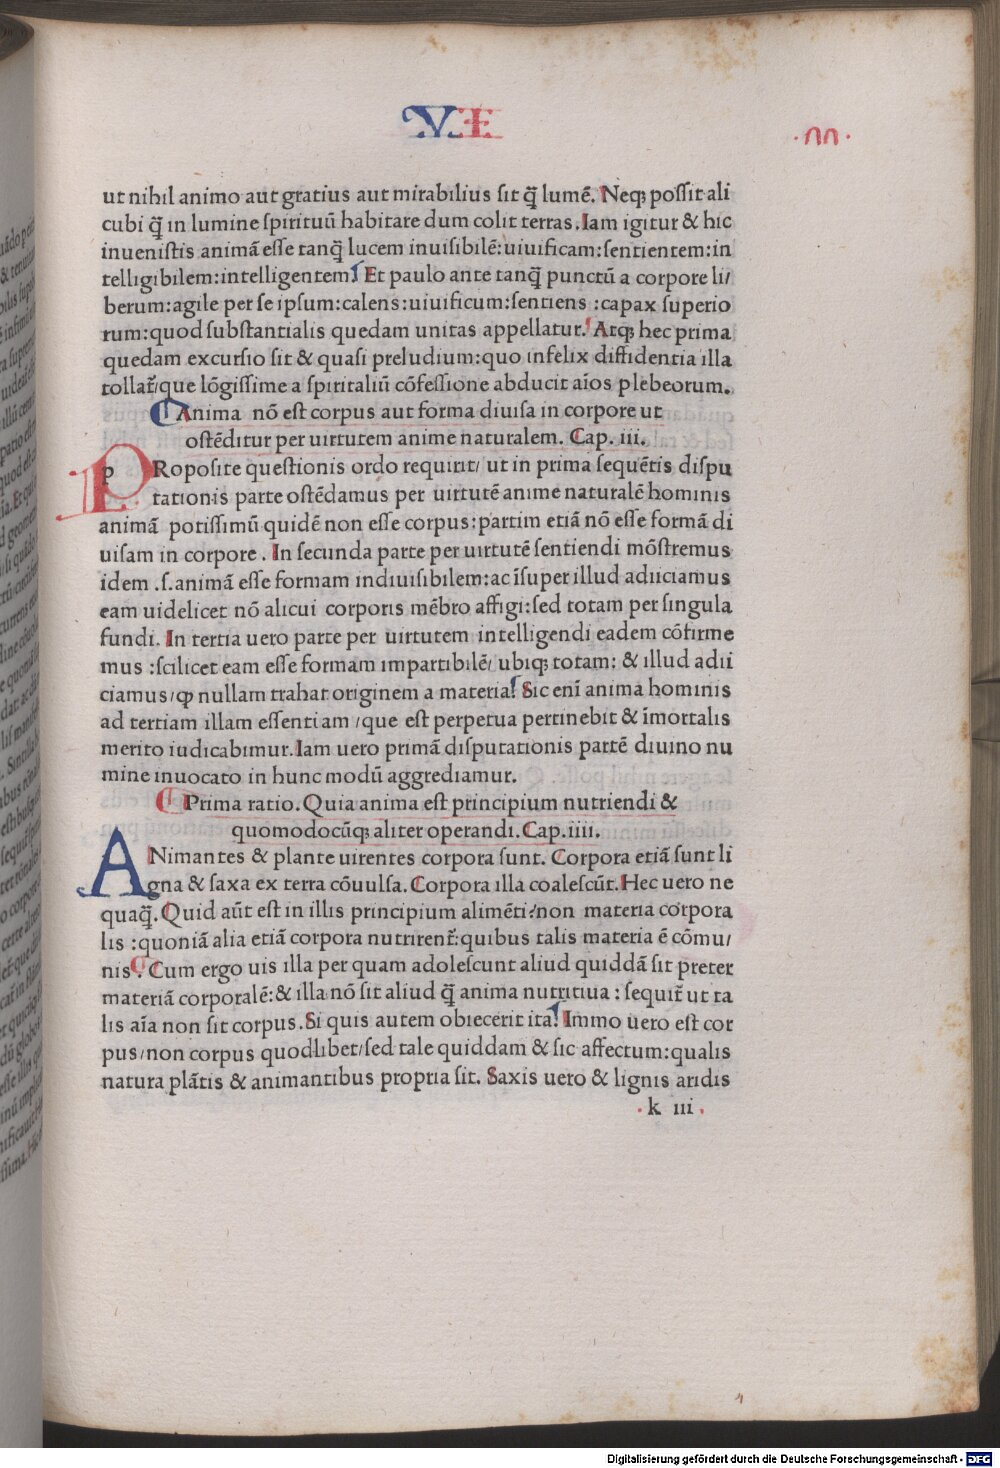 VI
ut nihil animo aut gratius aut mirabilius sit q̃ lumē. Neqꝫ possit ali
cubi q̃ in lumine spirituū habitare dum colit terras. Iam igitur & hic
inuenistis animā esse tanq̃ lucem inuisibilē:uiuificam:sentientem:in
telligibilem:intelligentem. Et paulo ante tanq̃ punctū a corpore li/
berum:agile per se ipsum:calens:uiuificum:sentiens :capax superio
rum:quod substantialis quedam unitas appellatur. Atqꝫ hec prima
quedam excursio sit & quasi preludium:quo infelix diffidentia illa
tollat᷑/que lōgissime a spiritaliū cōfessione abducit aīos plebeorum.
Anima nō est corpus aut forma diuisa in corpore ut
ostēditur per uirtutem anime naturalem. Cap. iii.
pRoposite questionis ordo requirit/ ut in prima sequētis dispu
tationis parte ostēdamus per uirtutē anime naturalē hominis
animā potissimū quidē non esse corpus:partim etiā nō esse formā di
uisam in corpore . In secunda parte per uirtutē sentiendi mōstremus
idem .s.animā esse formam indiuisibilem:ac īsuper illud adiiciamus
eam uidelicet nō alicui corporis mēbro affigi:sed totam per singula
fundi. In tertia uero parte per uirtutem intelligendi eadem cōfirme
mus :scilicet eam esse formam impartibilē/ ubiqꝫ totam: & illud adii
ciamus/ꝙ nullam trahat originem a materia. Sic enī anima hominis
ad tertiam illam essentiam /que est perpetua pertinebit & īmortalis
merito iudicabimur. Iam uero primā disputationis partē diuino nu
mine inuocato in hunc modū aggrediamur.
Prima ratio. Quia anima est principium nutriendi &
quomodocūqꝫ aliter operandi. Cap.iiii.
ANimantes & plante uirentes corpora sunt. Corpora etiā sunt li
gna & saxa ex terra cōuulsa. Corpora illa coalescūt. Hec uero ne
quaq̃. Quid aūt est in illis principium alimēti?non materia corpora
lis :quoniā alia etiā corpora nutrirent᷑:quibus talis materia ē cōmu/
nis. Cum ergo uis illa per quam adolescunt aliud quiddā sit preter
materiā corporalē:& illa nō sit aliud q̃ anima nutritiua : sequit᷑ ut ta
lis aīa non sit corpus. Si quis autem obiecerit ita. Immo uero est cor
pus/non corpus quodlibet/sed tale quiddam & sic affectum:qualis
natura plātis & animantibus propria sit. Saxis uero & lignis aridis
k iii
Digitalisierung gefördert durch die Deutsche Forschungsgemeinschaft - DFG